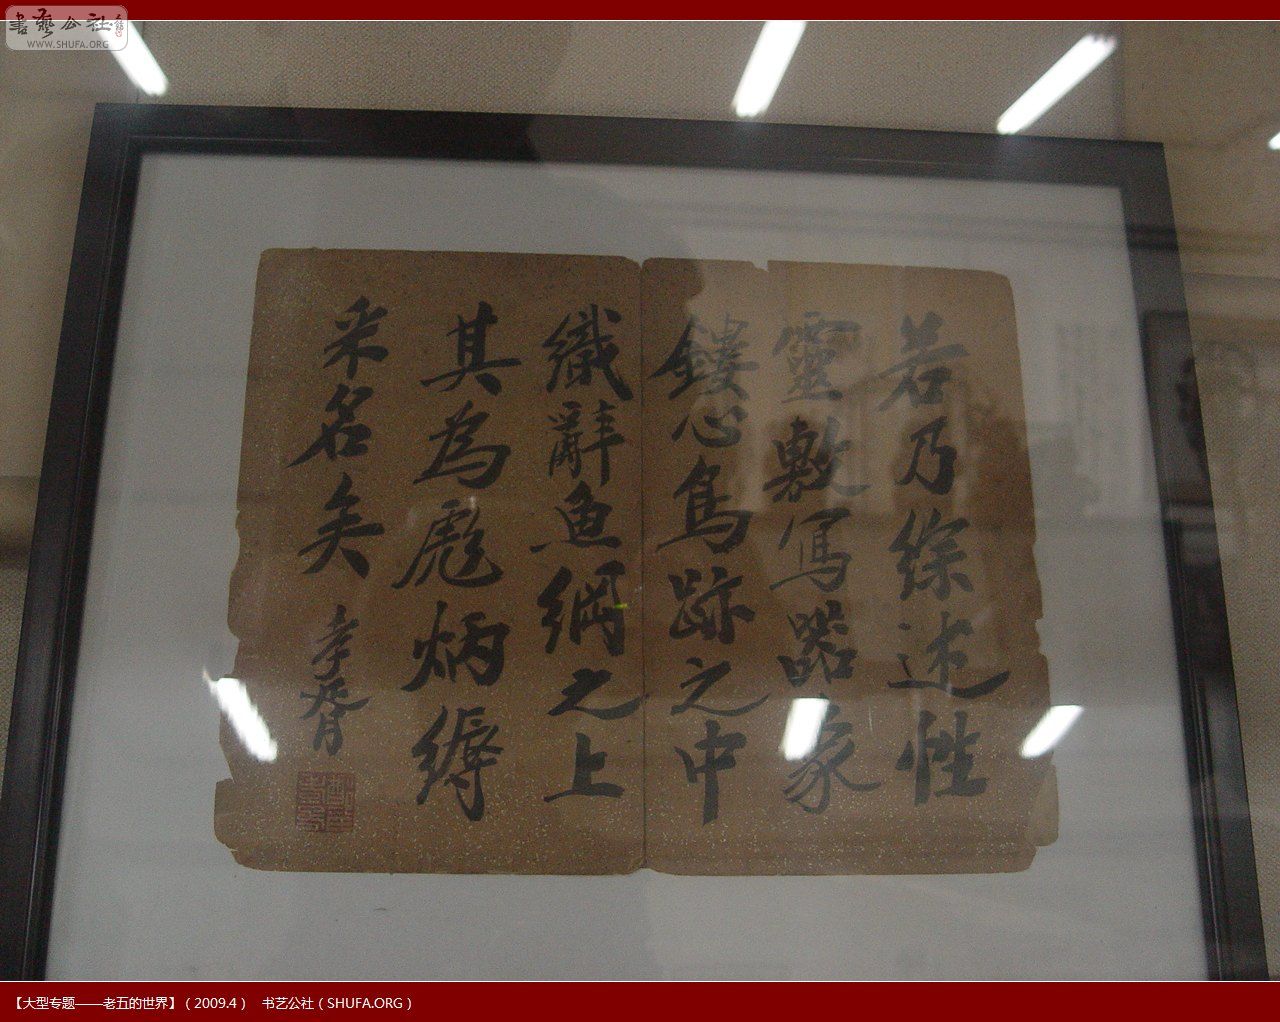 書藝公社
WWW.SHUFA.ORG
若乃綜述性
靈敷寫器象
鏤心鳥跡之中
織辭魚網之上
其為彪炳縟
采名矣
孝胥
【大型专题——老五的世界】（2009.4） 书艺公社（SHUFA.ORG）